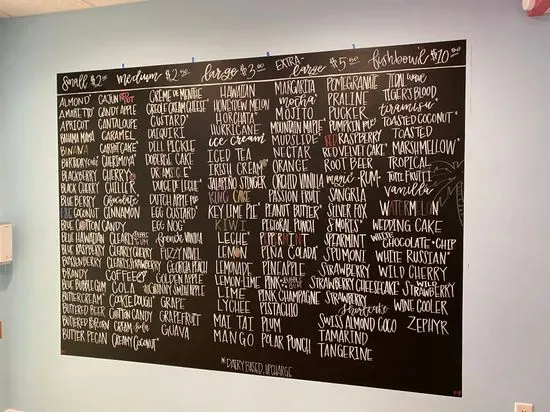 small $2.00 medium $2.50 large $3.00 EXTRA-large $5.00 fishbowl $10.00
ALMOND
AMARETTO
APRICOT
BAHAMA MAMA
BANANA
BIRTHDAY CAKE
BLACKBERRY
BLACK CHERRY
BLUE BERRY
BLUE COCONUT
BLUE COTTON CANDY
BLUE HAWAIIAN
BLUE RASPBERRY
BOYSENBERRY
BRANDY
BUBBLE GUM
BUTTERCREAM
BUTTERED BEER
BUTTERED POPCORN
BUTTER PECAN
CAJUN RED HOT
CANDY APPLE
CANTALOUPE
CARAMEL
CARROT CAKE*
CHERIMOYA*
CHERRY
CHILLER
Chocolate*
CINNAMON
CLEARLY
CLEARLY CHERRY
CLEARLY STRAWBERRY
COFFEE
COLA
COOKIE DOUGH*
COTTON CANDY
CREAM soda
CREAMY COCONUT*
CRÈME DE MENTHE
CREOLE CREAM CHEESE*
CUSTARD*
DAIQUIRI
DILL PICKLE
DOBERGE CAKE
DREAMSICLE*
DULCE DE LECHE*
DUTCH APPLE PIE
EGG CUSTARD
EGG NOG*
French Vanilla
FUZZY NAVEL
GEORGIA PEACH
GOLDEN APPLE
GRANNY SMITH APPLE
GRAPE
GRAPEFRUIT
GUAVA
HAWAIIAN
HONEYDEW MELON
HORCHATA
HURRICANE
ice cream
ICED TEA
IRISH CREAM
JALAPEÑO STINGER
KING CAKE
KEY LIME PIE*
KIWI
LECHE
LEMON
LEMONADE
LEMON-LIME
LIME
LYCHEE
MAI TAI
MANGO
MARGARITA
mocha*
MOJITO
MOUNTAIN MAPLE*
MUDSLIDE*
NECTAR
ORANGE
ORCHID VANILLA
PASSION FRUIT
PEANUT BUTTER*
PECTORAL PUNCH
PEPPERMINT
PIÑA COLADA*
PINEAPPLE
PINK BUBBLE GUM
PINK CHAMPAGNE
PISTACHIO
PLUM
POLAR PUNCH
POMEGRANATE
PRALINE
PUCKER
PUMPKIN PIE*
RED RASPBERRY
RED VELVET CAKE*
ROOT BEER
RUM
SANGRIA
SILVER FOX
S'MORES*
SPEARMINT
SPUMONI
STRAWBERRY
STRAWBERRY CHEESECAKE*
STRAWBERRY Shortcake
SWISS ALMOND COCO
TAMARIND
TANGERINE
TIGER'S BLOOD
tiramisu*
TOASTED COCONUT*
TOASTED
MARSHMALLOW*
TROPICAL
TUTTI FRUTTI
vanilla
WATERMELON
WEDDING CAKE
WHITE CHOCOLATE CHIP
WHITE RUSSIAN*
WILD CHERRY
WILD STRAWBERRY
WINE COOLER
ZEPHYR
*DAIRY BASED, UPCHARGE